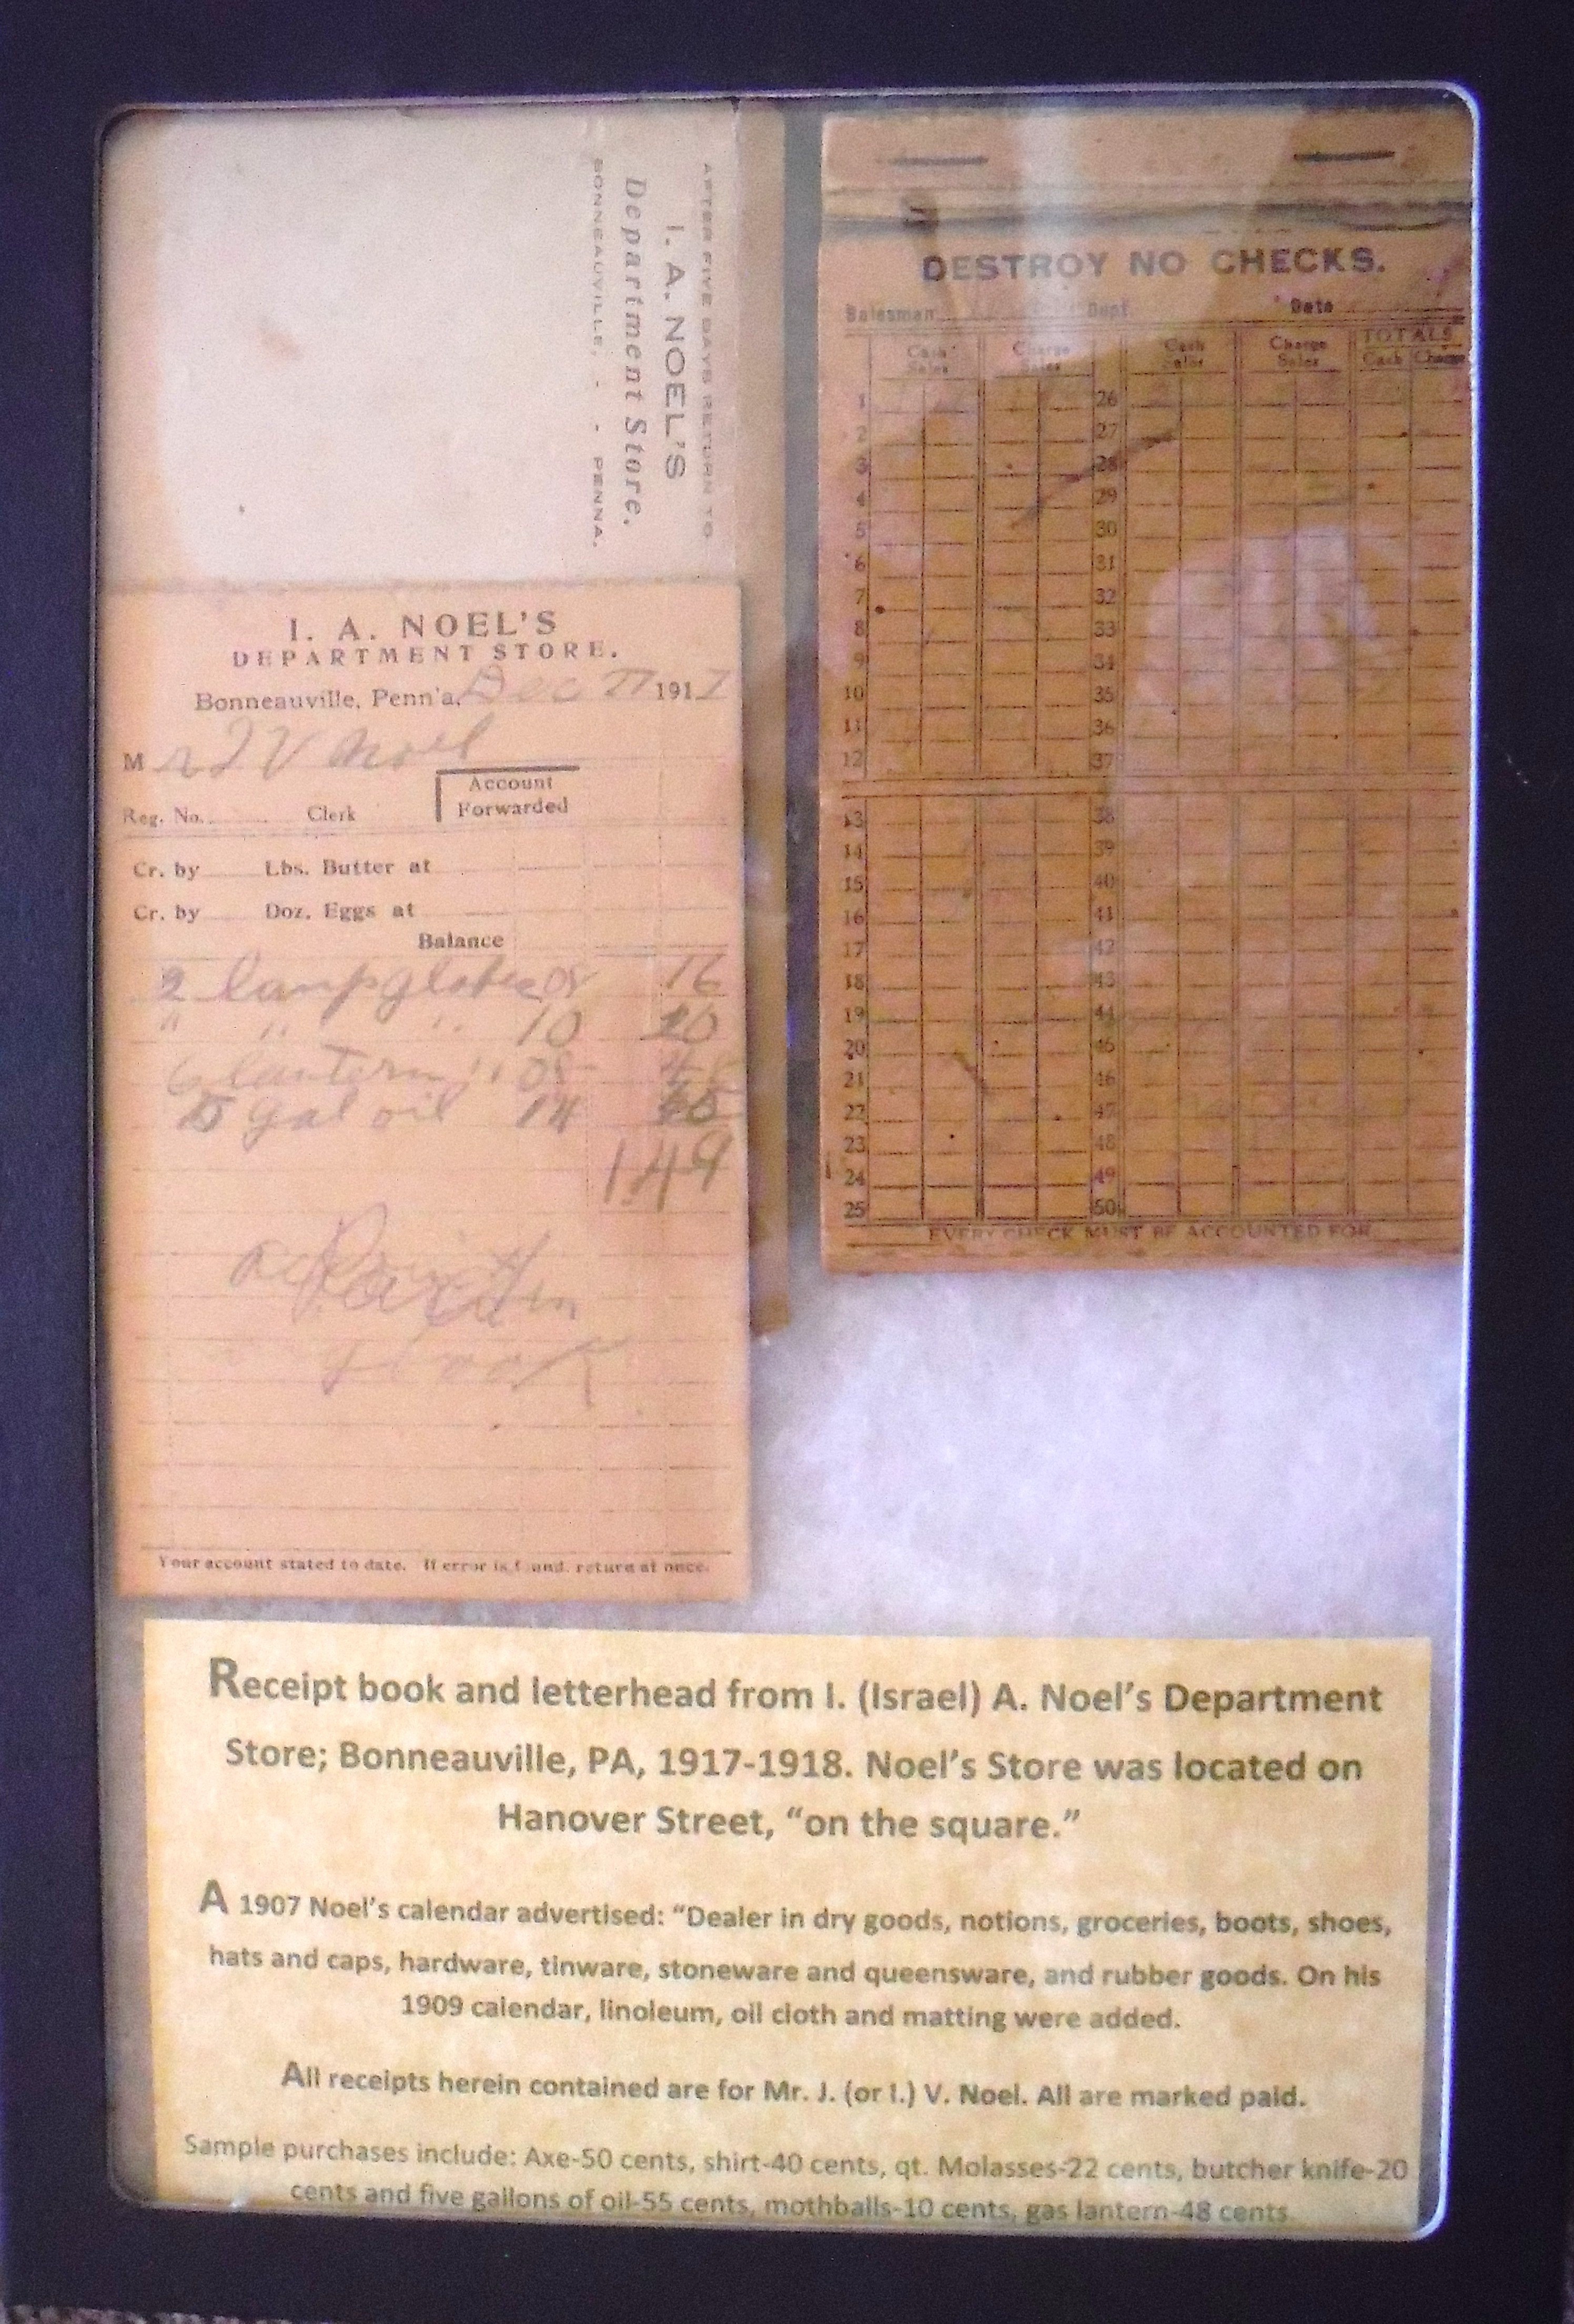 AFTER FIVE DAYS RETURN TO
I. A. NOEL'S
Department Store.
BONNEAUVILLE, - - PENNA.
I. A. NOEL'S
DEPARTMENT STORE.
Bonneauville, Penn'a, Dec 191
Mr V Noel
Account
Forwarded
Reg. No. Clerk
Cr. by Lbs. Butter at
Cr. by Doz. Eggs at
Balance
2 lamp globes 08 16
" " " 10 20
6 lantern " 08 48
5 gal oil
149
Your account stated to date. If error is found, return at once.
DESTROY NO CHECKS.
Salesman Dept. Date
Cash Sales Charge Sales Cash Sales Charge Sales TOTALS
Cash Charge
1 26
2 27
3 28
4 29
5 30
6 31
7 32
8 33
9 34
10 35
11 36
12 37
13 38
14 39
15 40
16 41
17 42
18 43
19 44
20 45
21 46
22 47
23 48
24 49
25 50
EVERY CHECK MUST BE ACCOUNTED FOR
Receipt book and letterhead from I. (Israel) A. Noel's Department
Store; Bonneauville, PA, 1917-1918. Noel's Store was located on
Hanover Street, “on the square.”
A 1907 Noel's calendar advertised: “Dealer in dry goods, notions, groceries, boots, shoes,
hats and caps, hardware, tinware, stoneware and queensware, and rubber goods. On his
1909 calendar, linoleum, oil cloth and matting were added.
All receipts herein contained are for Mr. J. (or I.) V. Noel. All are marked paid.
Sample purchases include: Axe-50 cents, shirt-40 cents, qt. Molasses-22 cents, butcher knife-20
cents and five gallons of oil-55 cents, mothballs-10 cents, gas lantern-48 cents